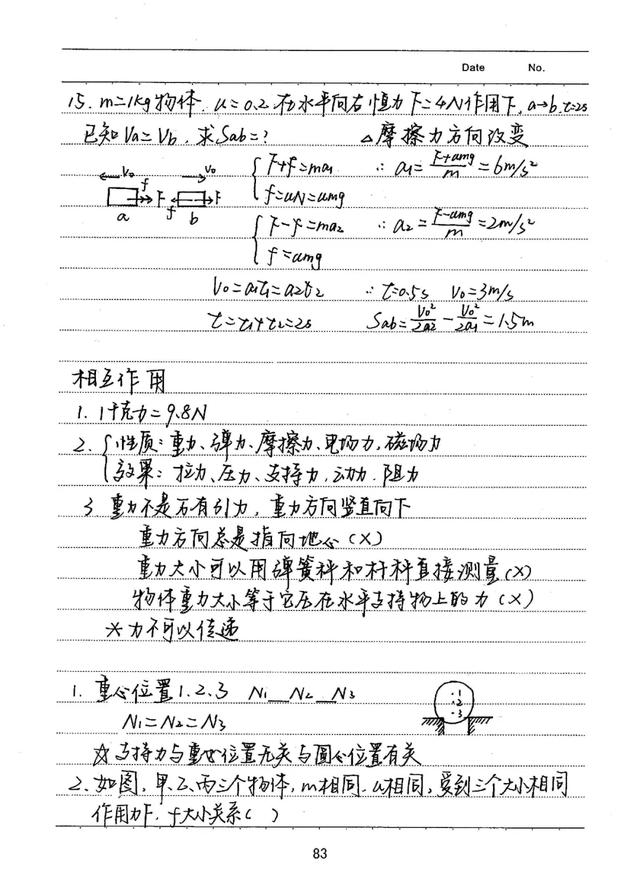 Date No.
15. m=1kg物体. u=0.2. 在水平向右恒力F=4N作用下, a→b. t=2s
已知Va=Vb, 求Sab=? △摩擦力方向改变
V₀ V₀ F+f=ma₁ ∴ a₁=(F+umg)/m=6m/s²
f F f F f=uN=umg
a b F-f=ma₂ ∴ a₂=(F-umg)/m=2m/s²
f=umg
V₀=a₁t₁=a₂t₂ ∴ t=0.5s V₀=3m/s
t=t₁+t₂=2s Sab=V₀²/2a₂-V₀²/2a₁=1.5m
相互作用
1. 1千克力=9.8N
2. 性质: 重力、弹力、摩擦力、电场力, 磁场力
效果: 拉力、压力、支持力, 动力. 阻力
3 重力不是万有引力, 重力方向竖直向下
重力方向总是指向地心(X)
重力大小可以用弹簧秤和杆秤直接测量(X)
物体重力大小等于它压在水平支持物上的力(X)
*力不可以传递
1. 重心位置1.2.3 N₁__N₂__N₃ 1
N₁=N₂=N₃ 2
3
☆支持力与重心位置无关与圆心位置有关
2、如图, 甲、乙、丙三个物体, m相同. u相同, 受到三个大小相同
作用力下. f大小关系( )
83